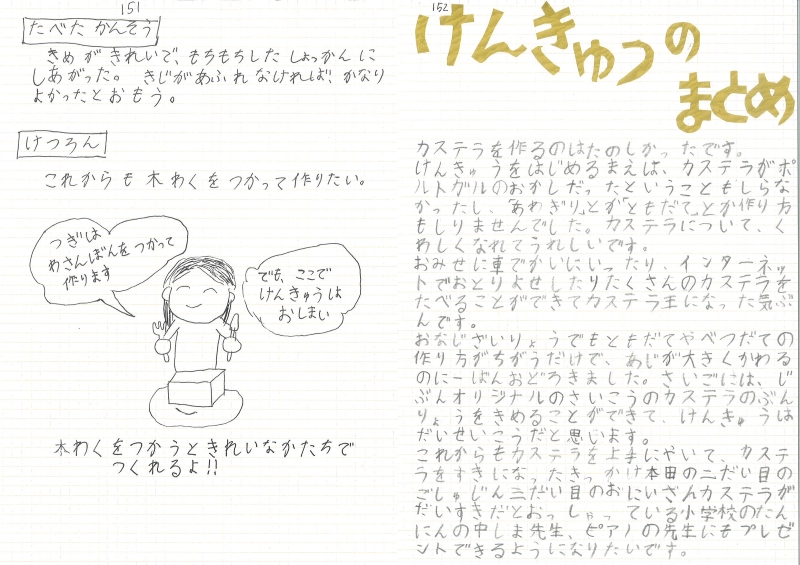 151
たべた かんそう
きめ が きれいで、もちもちした しょっかん に
しあがった。 きじがあふれ なければ、かなり
よかったとおもう。
けつろん
これからも 木 わく を つかって 作りたい。
つぎは
わさんぼんを つかって
作ります
でも、ここで
けんきゅうは
おしまい
木わく をつかうときれいなかたちで
つくれるよ!!
152
けんきゅうの
まとめ
カステラを作るのはたのしかったです。
けんきゅうをはじめるまえは、カステラがポ
ルトガルのおかしだったということもしらな
かったし、「あわぎり」とか「ともだて」とか作り方
もしりませんでした。カステラについて、く
わしくなれてうれしいです。
おみせに車でかいにいったり、インターネッ
トでおとりよせしたりたくさんのカステラを
たべることができてカステラ王になった気ぶ
んです。
おなじざいりょうでもともだてやべつだての
作り方がちがうだけで、あじが大きくかわる
のに一ばんおどろきました。さいごには、じ
ぶんオリジナルのさいこうのカステラのぶん
りょうをきめることができて、けんきゅうは
だいせいこうだと思います。
これからもカステラを上手にやいて、カステ
ラをすきになったきっかけ本田の二だい目の
ごしゅじん三だい目のおにいさんカステラが
だいすきだとおっしゃっている小学校のたん
にんの中しま先生、ピアノの先生にもプレゼ
ントできるようになりたいです。